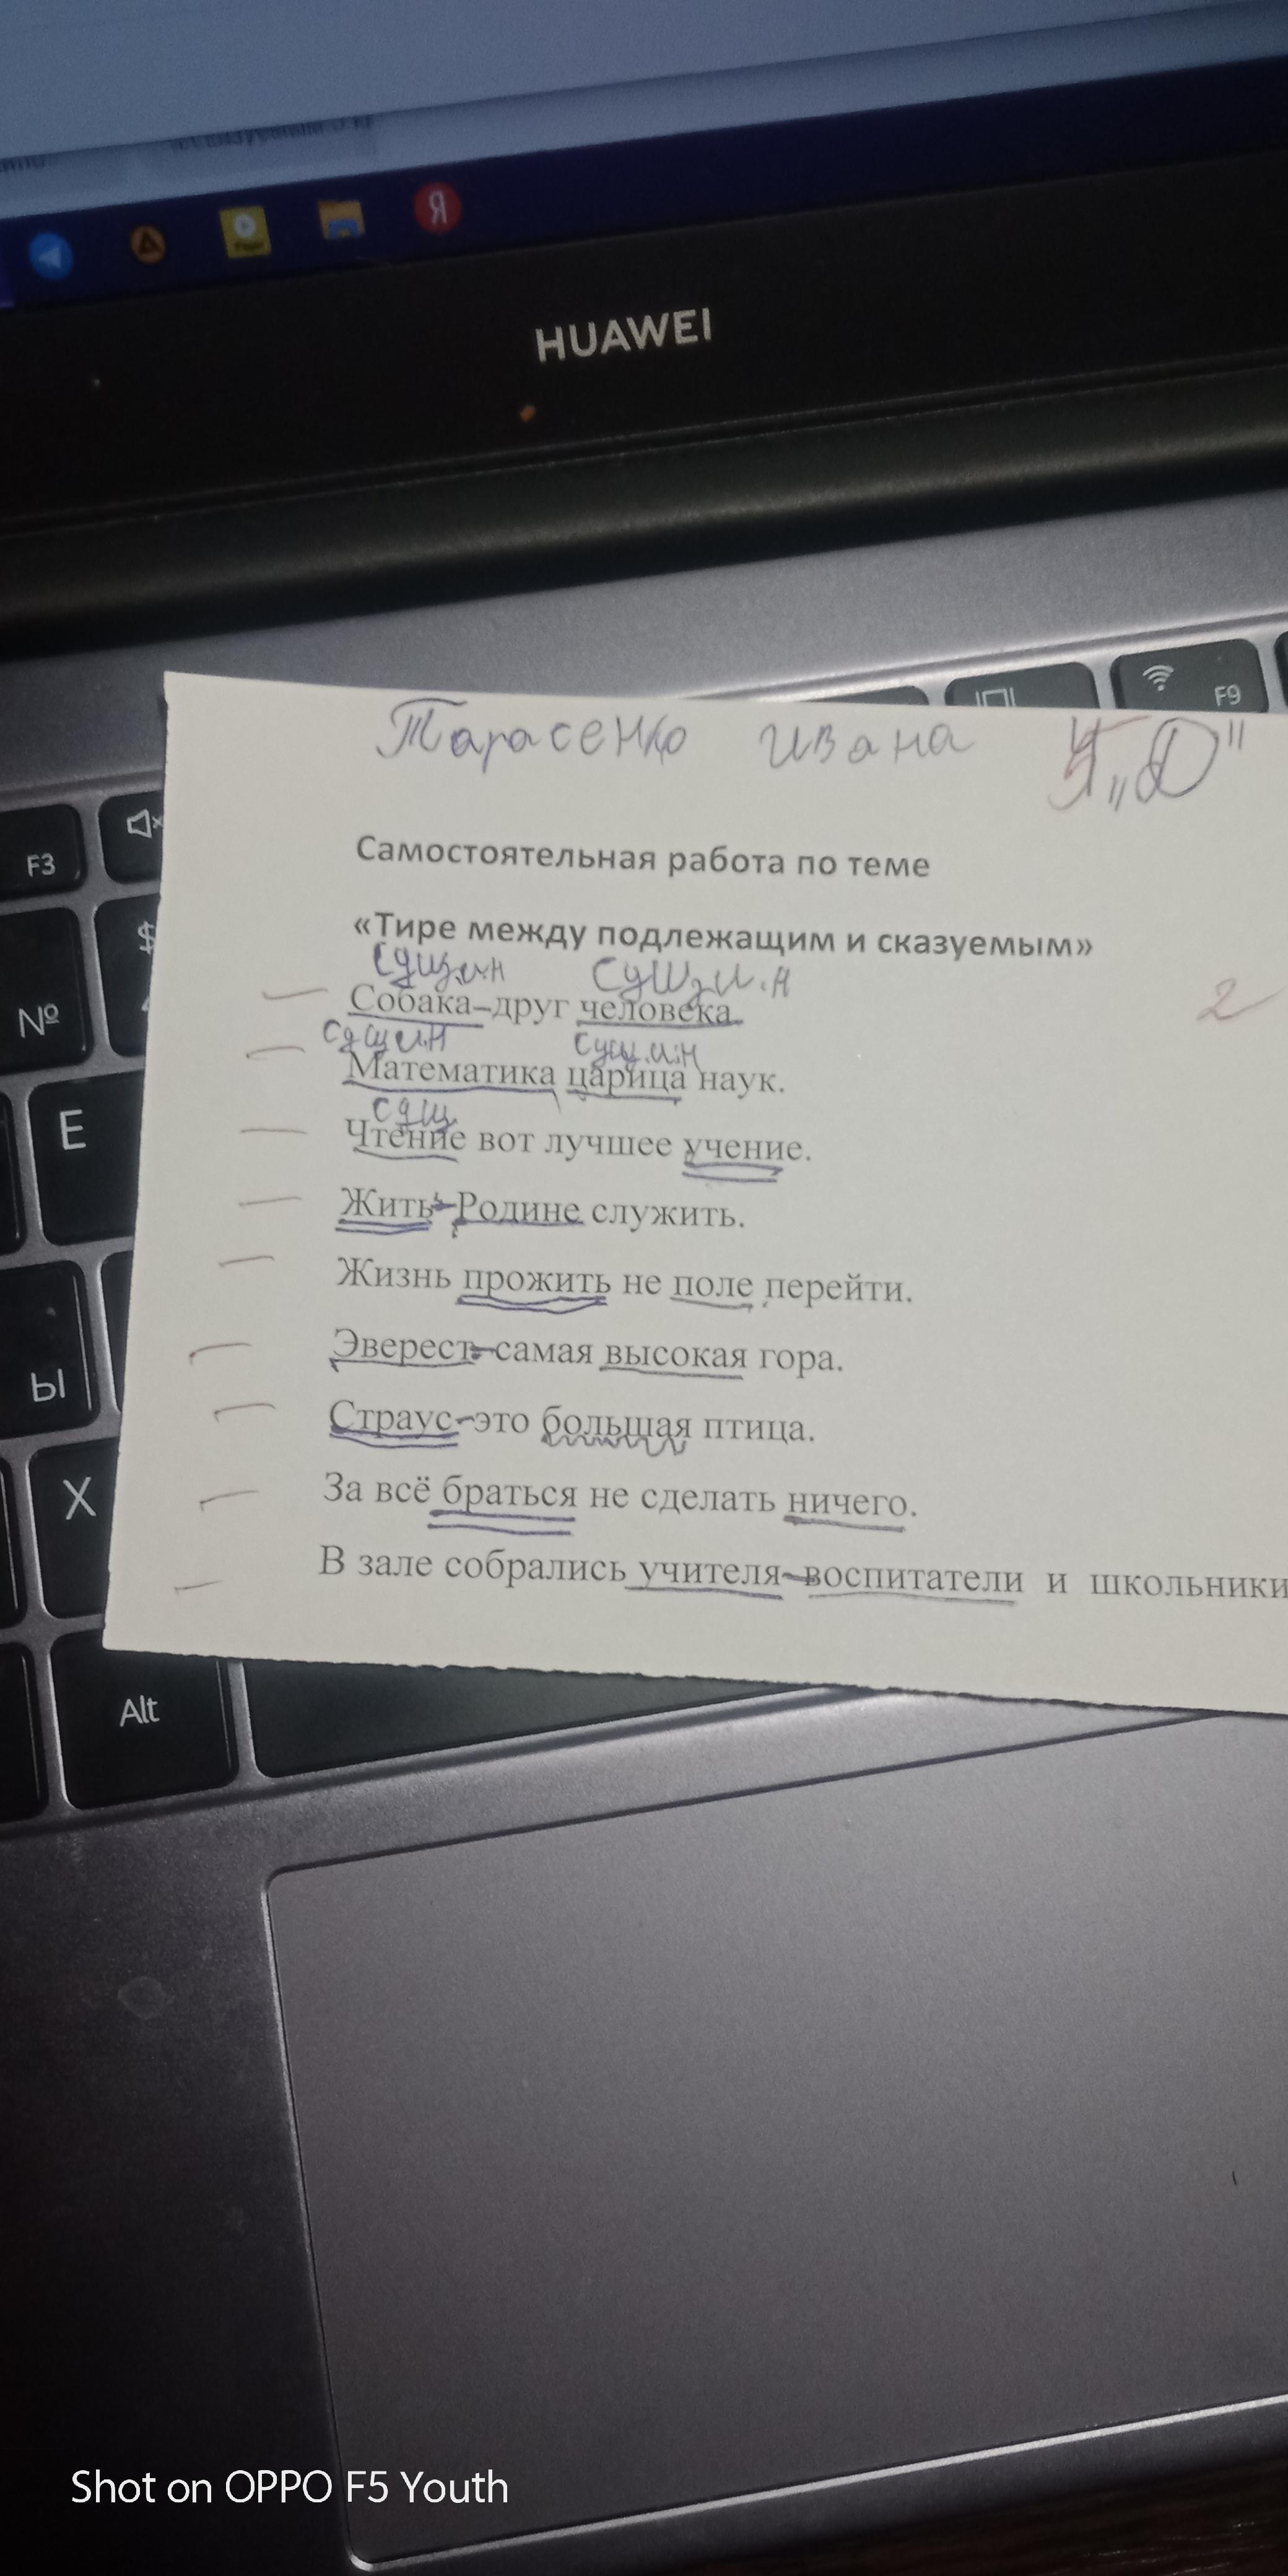 Я
HUAWEI
F9
Тарасенко Ивана 5 „Д"
F3
Самостоятельная работа по теме
$
«Тире между подлежащим и сказуемым»
сущ.и.н сущ.и.н
№
Собака-друг человека.
2
сущ и.н сущ.и.н
Математика царица наук.
E
сущ.
Чтение вот лучшее учение.
Жить-Родине служить.
Жизнь прожить не поле перейти.
Эверест-самая высокая гора.
Ы
Страус-это большая птица.
X
За всё браться не сделать ничего.
В зале собрались учителя-воспитатели и школьники
Alt
Shot on OPPO F5 Youth